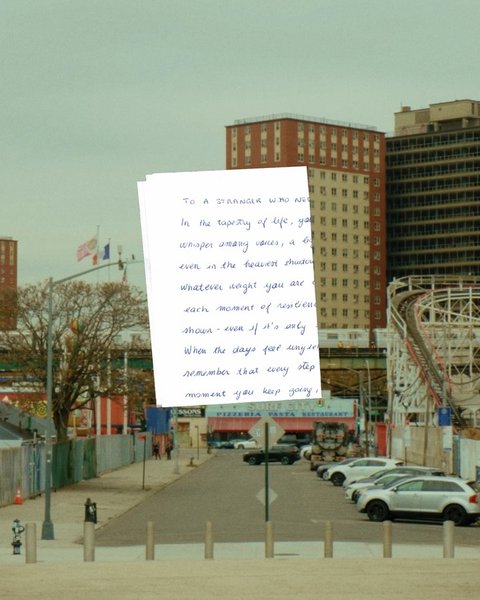 TO A STRANGER WHO
In the tapestry of life,
whisper among voices, a
even in the heaviest
whatever weight you are
each moment of
shown - even if it's only
When the days feel
remember that every step
moment you keep going,
SURF CITY
PIZZERIA PASTA RESTAURANT